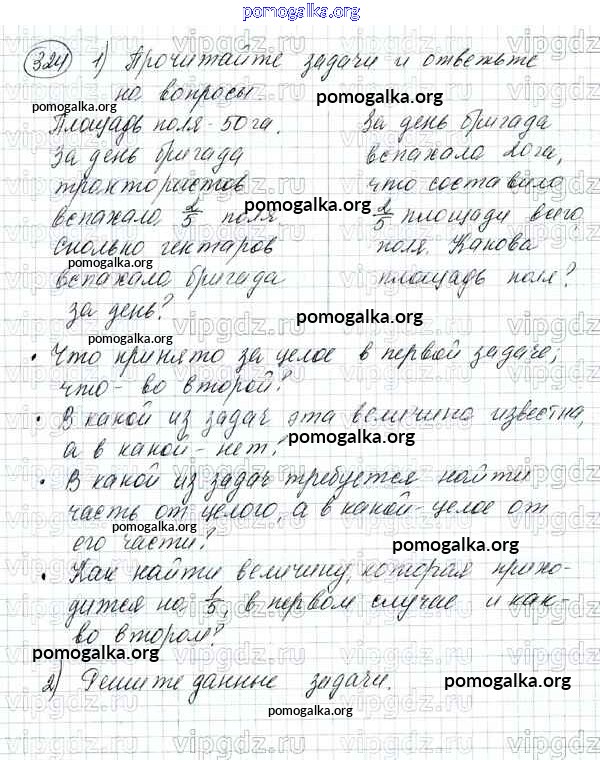 pomogalka.org
324 1) Прочитайте задачи и ответьте
на вопросы.
pomogalka.org
pomogalka.org
Площадь поля - 50 га.
За день бригада
трактористов
вспахала 2/5 поля.
Сколько гектаров
вспахала бригада
за день?
За день бригада
вспахала 20 га,
что составило
2/5 площади всего
поля. Какова
площадь поля?
pomogalka.org
pomogalka.org
pomogalka.org
pomogalka.org
• Что принято за целое в первой задаче,
что - во второй?
• В какой из задач эта величина известна,
а в какой - нет?
pomogalka.org
pomogalka.org
• В какой из задач требуется найти
часть от целого, а в какой - целое от
его части?
pomogalka.org
pomogalka.org
• Как найти величину, которая прихо-
дится на 1/5, в первом случае и как -
во втором?
pomogalka.org
pomogalka.org
2) Решите данные задачи.
pomogalka.org
pomogalka.org
vipgdz.ru